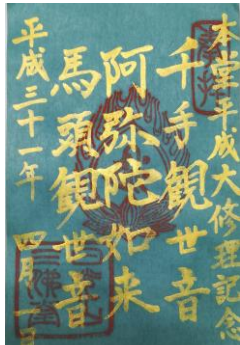 本宮平成大修理記念
千手観世音
阿弥陀如来
馬頭観世音
平成三十一年 四月一日